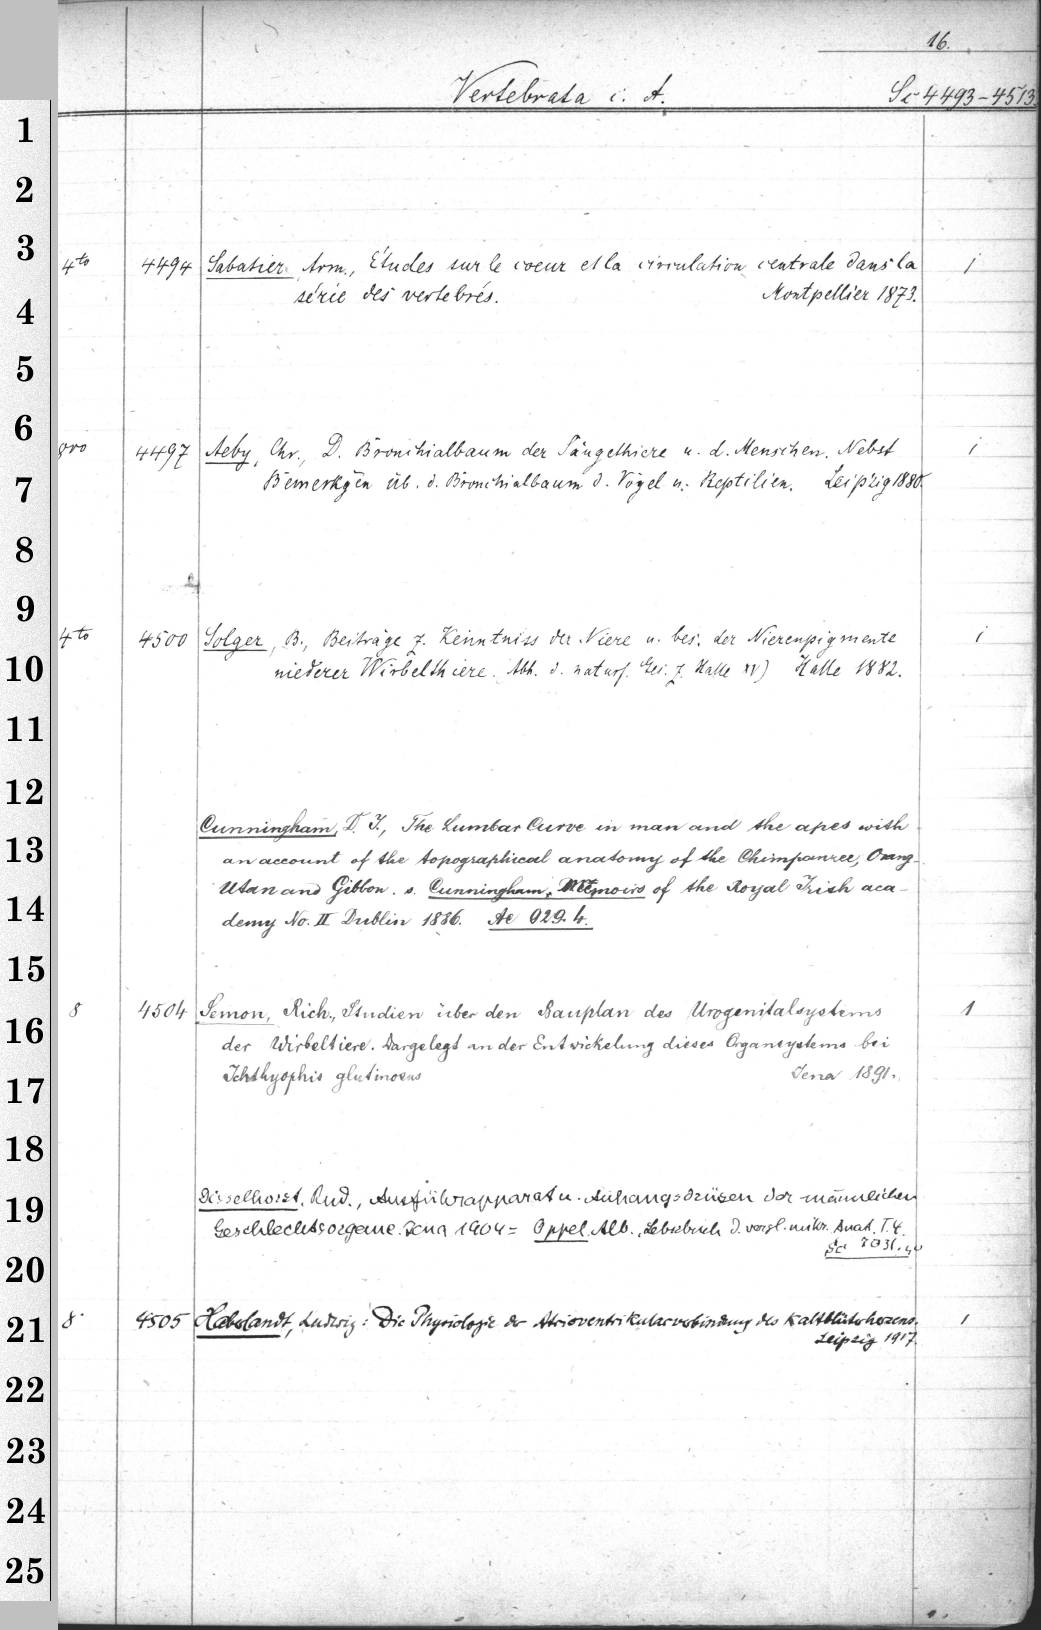 16.
Vertebrata i. A. Sc 4493-4513.
4to 4494 Sabatier Arm., Études sur le coeur et la circulation centrale dans la 1
série des vertebrés. Montpellier 1873.
8vo 4497 Aeby, Chr., D. Bronchialbaum der Säugethiere u. d. Menschen. Nebst 1
Bemerkgen üb. d. Bronchialbaum d. Vögel u. Reptilien. Leipzig 1880.
4to 4500 Solger, B., Beiträge z. Kenntniss der Niere u. bes. der Nierenpigmente 1
niederer Wirbelthiere. (Abh. d. naturf. Ges. z. Halle XV) Halle 1882.
Cunningham, D. J., The Lumbar Curve in man and the apes with
an account of the topographical anatomy of the Chimpanzee, Orang-
Utan and Gibbon. s. Cunningham, Memoirs of the Royal Irish aca-
demy No. II Dublin 1886. Ae 929. 4.
8 4504 Semon, Rich., Studien über den Bauplan des Urogenitalsystems 1
der Wirbeltiere. Dargelegt an der Entwickelung dieses Organsystems bei
Ichthyophis glutinosus Jena 1891.
Disselhorst, Rud., Ausführapparat u. Anhangsdrüsen der männlichen
Geschlechtsorgane. Jena 1904 = Oppel, Alb., Lehrbuch d. vergl. mikr. Anat. T. 4.
8. 4505 Haberlandt, Ludwig: Die Physiologie der Atrioventrikularverbindung des Kaltblüterherzens. 1
Leipzig 1917.